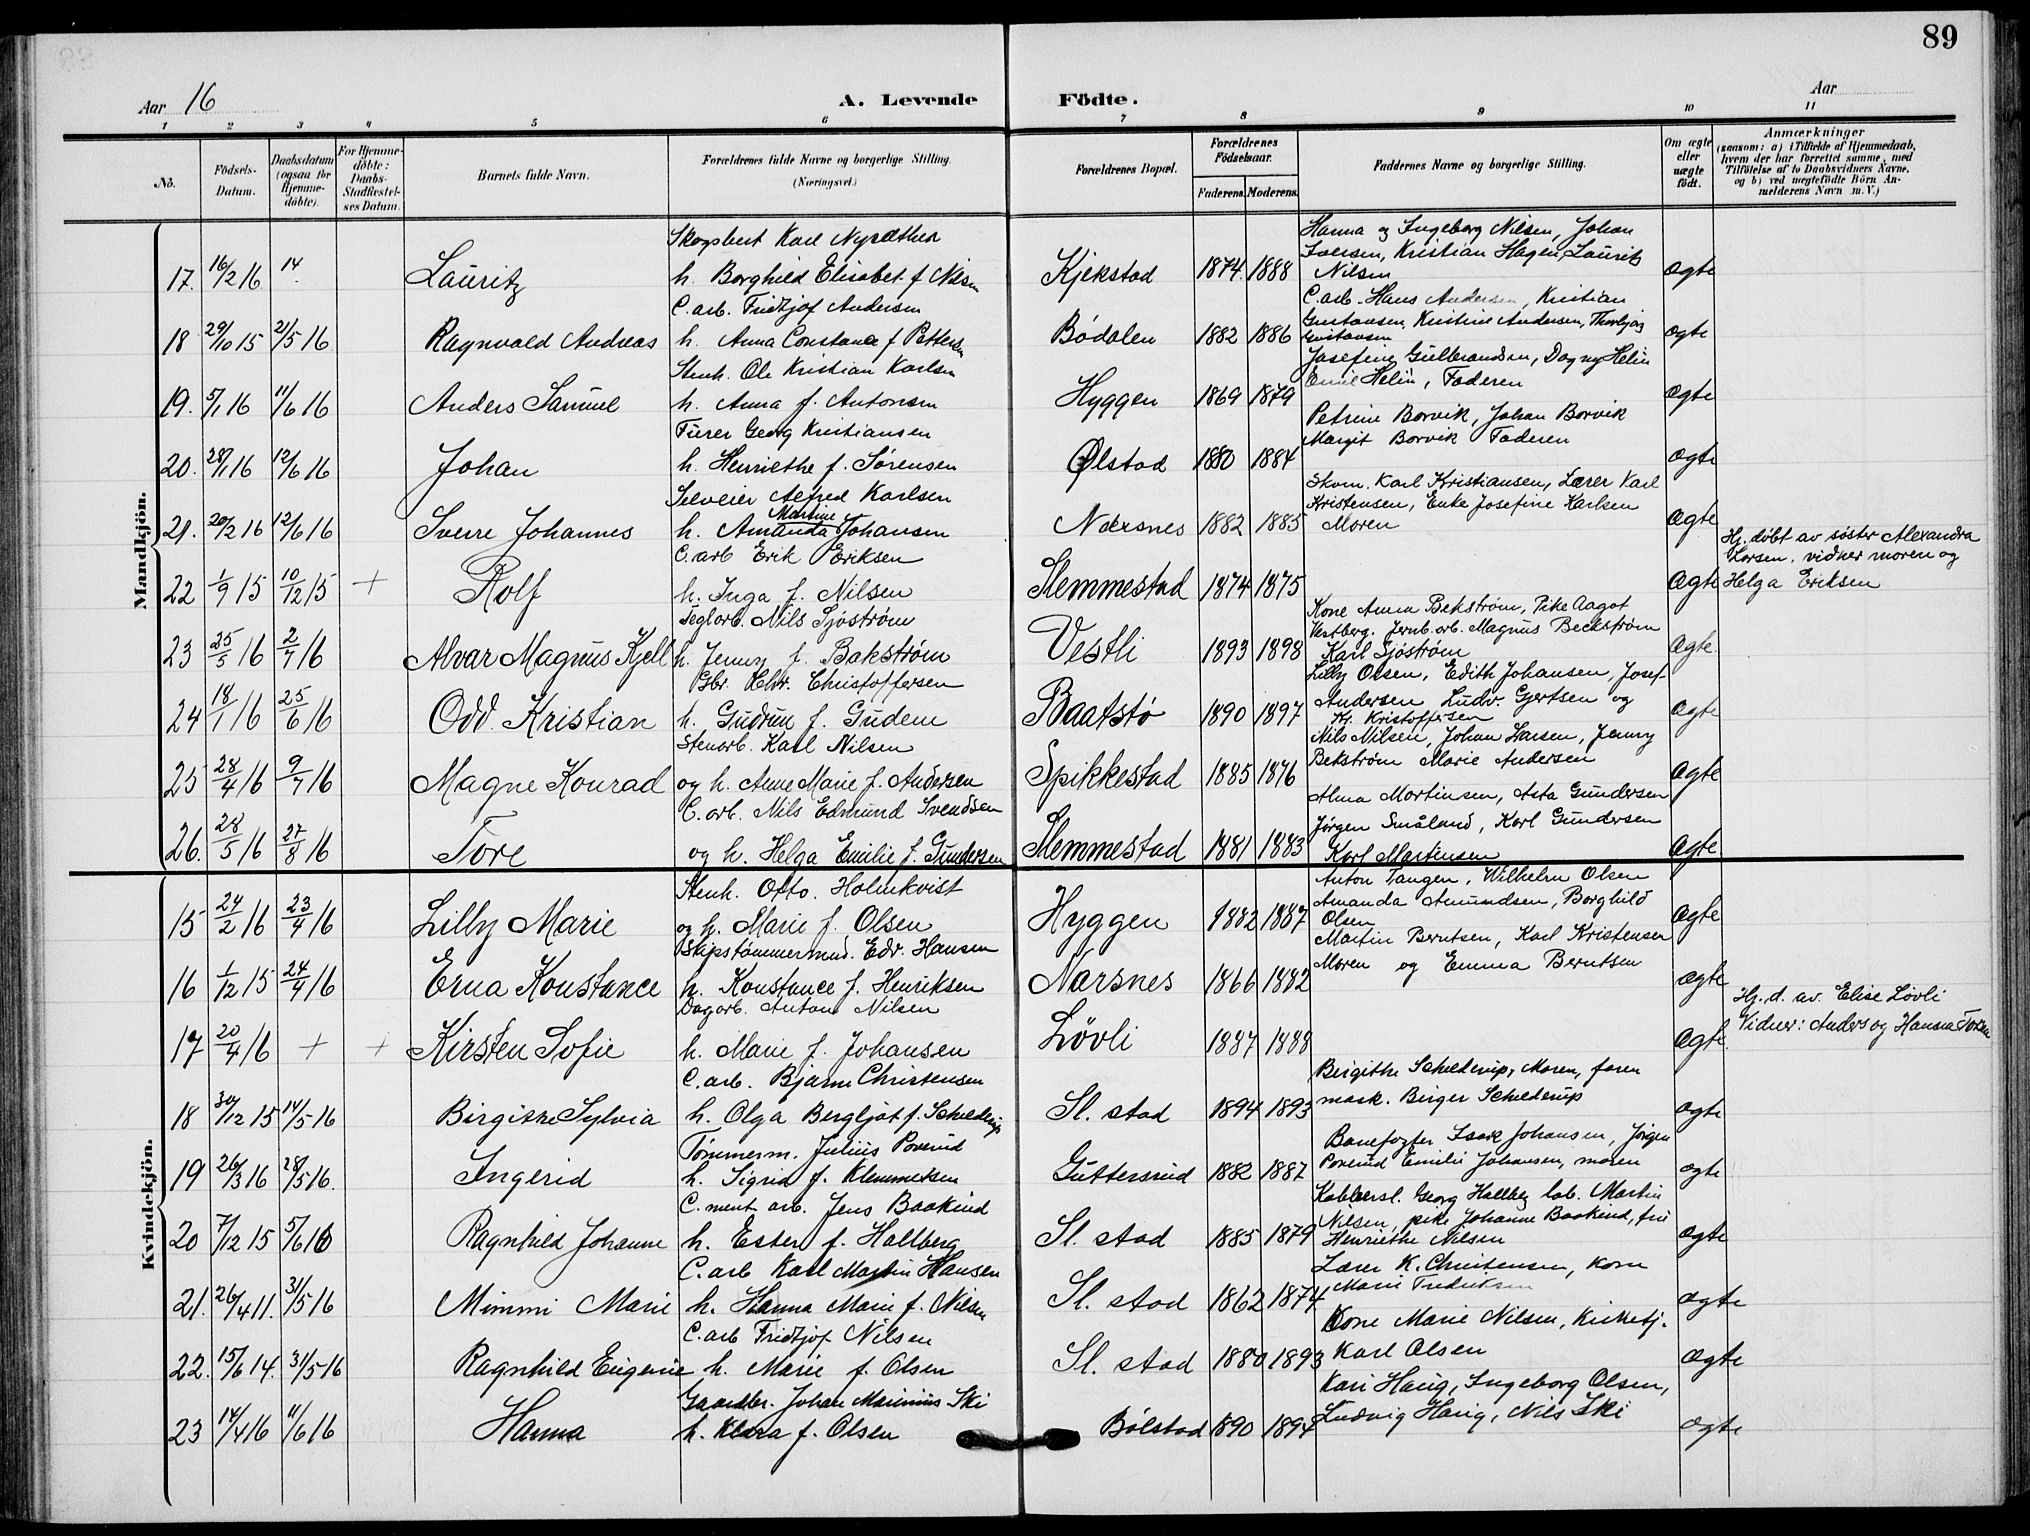 89
Aar 16
A. Levende Födte.
Aar
1 2 3 4 5 6 7 8 9 10 11
No.
Födsels-Datum.
Daabsdatum (ogsaa for Hjemme-döbte).
For Hjemme-döbte: Daabs-Stadfæstel-ses Datum.
Barnets fulde Navn.
Forældrenes fulde Navne og borgerlige Stilling.
(Næringsvei.)
Forældrenes Bopæl.
Forældrenes Födselsaar.
Faderens. Moderens.
Faddernes Navne og borgerlige Stilling.
Om ægte eller uægte födt.
Anmærkninger
(saasom: a) i Tilfælde af Hjemmedaab, hvem der har forrettet samme, med Tilföielse af to Daabsvidners Navne, og b) ved uægtefödte Börn Anmelderens Navn m. V.)
Mandkjön.
17. 16/2 16 14. Lauritz
h. Borghild Elisabet f. Nilsen
Kjekstad 1874. 1888
Hanna og Ingeborg Nilsen, Johan
Iversen, Kristian Hagen, Lauritz
Nilsen
ægte
18 29/10 15 21/5 16 Ragnvald Andreas
C. arb. Fridtjof Andersen
h. Anna Constance f Pettersen
Bödalen 1882 1886
C. arb. Hans Andersen, Kristian
Gustavsen, Kristine Andersen, Thorbjørg
Gustavsen
ægte
19. 5/1 16 11/6 16 Anders Samuel
Stenh. Ole Kristian Karlsen
h. Anna f. Antonsen
Hyggen 1869 1879
Josefine Gulbrandsen, Dagny Helin
Emil Helin, Faderen
ægte
20. 28/1 16 12/6 16 Johan
Furer Georg Kristiansen
h. Henriethe f. Sørensen
Ølstad 1880 1884
Petrine Borvik, Johan Borvik
Margit Borvik Faderen
ægte
21. 20/2 16 12/6 16 Sverre Johannes
Selveier Alfred Karlsen
Martine
h. Amanda Johansen
Nærsnes 1882 1885
Skom. Karl Kristiansen, Lærer Karl
Kristensen, Enke Josefine Karlsen
Moren
ægte
22 1/9 15 10/12 15 + Rolf
C. arb Erik Eriksen
h. Inga f. Nilsen
Slemmestad 1874 1875
ægte
Hj. døbt av søster Alexandra
Larsen, vidner moren og
Helga Eriksen
23 25/5 16 2/7 16 Alvar Magnus Kjell
Teglarb. Nils Sjöström
h. Jenny f. Bakstrøm
Vestli 1893 1898
Kone Anna Bekstrøm, Pike Aagot
Vestberg. Jernb. arb. Magnus Beckstrøm
Karl Sjöstrøm
ægte
24 18/1 16 25/6 16 Odd Kristian
Gbr. Hldr. Christoffersen
h. Gudrun f. Gudem
Baatstø 1890 1897
Lilly Olsen, Edith Johansen, Josef
Andersen Ludv. Gjertsen og
Kr. Kristoffersen
ægte
25 28/4 16 9/7 16 Magne Konrad
Stenarb. Karl Nilsen
og h. Anne Marie f. Andersen
Spikkestad 1885 1876
Nils Nilsen, Johan Hansen, Jenny
Bekstrøm Marie Andersen
ægte
26. 28/5 16 27/8 16 Tore
C. arb. Nils Edmund Svendsen
og h. Helga Emilie f. Gundersen
Slemmestad 1881 1883
Alma Mortinsen, Asta Gundersen
Jørgen Småland, Karl Gundersen
Karl Martensen
ægte
Kvindekjön.
15 24/2 16 23/4 16 Lilly Marie
Stenh. Otto. Holmkvist
og h. Marie f. Olsen
Hyggen 1882 1887
Anton Tangen, Wilhelm Olsen
Amanda Amundsen, Borghild
Olsen
ægte
16 1/12 15 24/4 16 Erna Konstance
Skipstømmermnd. Edv. Hansen
h. Konstance f. Henriksen
Narsnes 1866 1882
Martin Berntsen, Karl Kristensen
Moren og Emma Berntsen
ægte
17 20/4 16 + + Kirsten Sofie
Dagarb. Anton Nilsen
h. Marie f. Johansen
Løvli 1887 1888
ægte
Hj. d. av. Elise Løvli
Vidner: Anders og Hanna
18 30/12 15 14/5 16 Birgithe Sylvia
C. arb. Bjarne Christensen
h. Olga Bergljot f. Schelderup
Sl. stad 1894 1893
Birgithe Schelderup, Moren, faren
mask. Birger Schelderup
ægte
19 26/3 16 28/5 16. Ingerid
Tømmerm. Julius Poverud
h. Sigrid f. Klemmetsen
Guttersrud 1882 1887
Banefogter Isark Johansen, Jørgen
Poverud Emilie Johansen, moren
ægte
20 7/12 15 5/6 16 Ragnhild Johanne
C. ment arb. Jens Baakind
h. Ester f. Hallberg
Sl. stad 1885 1879
Kobbersl. Georg Hallberg lab. Martin
Nilsen, pike Johanne Baakind, fru
Henriethe Nilsen
ægte
21. 26/4 11. 31/5 16 Mimmi Marie
C. arb Karl Martin Hansen
h. Hanna Marie f. Nilsen
Sl. stad 1862 1874
Lærer K. Christensen, kone
Marie Fredriksen
ægte
22. 15/6 14. 31/5 16 Ragnhild Eugenie
C. arb Fridtjof Nilsen
h. Marie f. Olsen
Sl. stad 1880 1893
Kone Marie Nilsen, Kirketj.
Karl Olsen
ægte
23 14/4 16 11/6 16 Hanna
Gaardbr. Johan Marinius Ski
h. Klara f. Olsen
Bölstad 1890 1894
Kari Haug, Ingeborg Olsen,
Ludvig Haug, Nils Ski
ægte